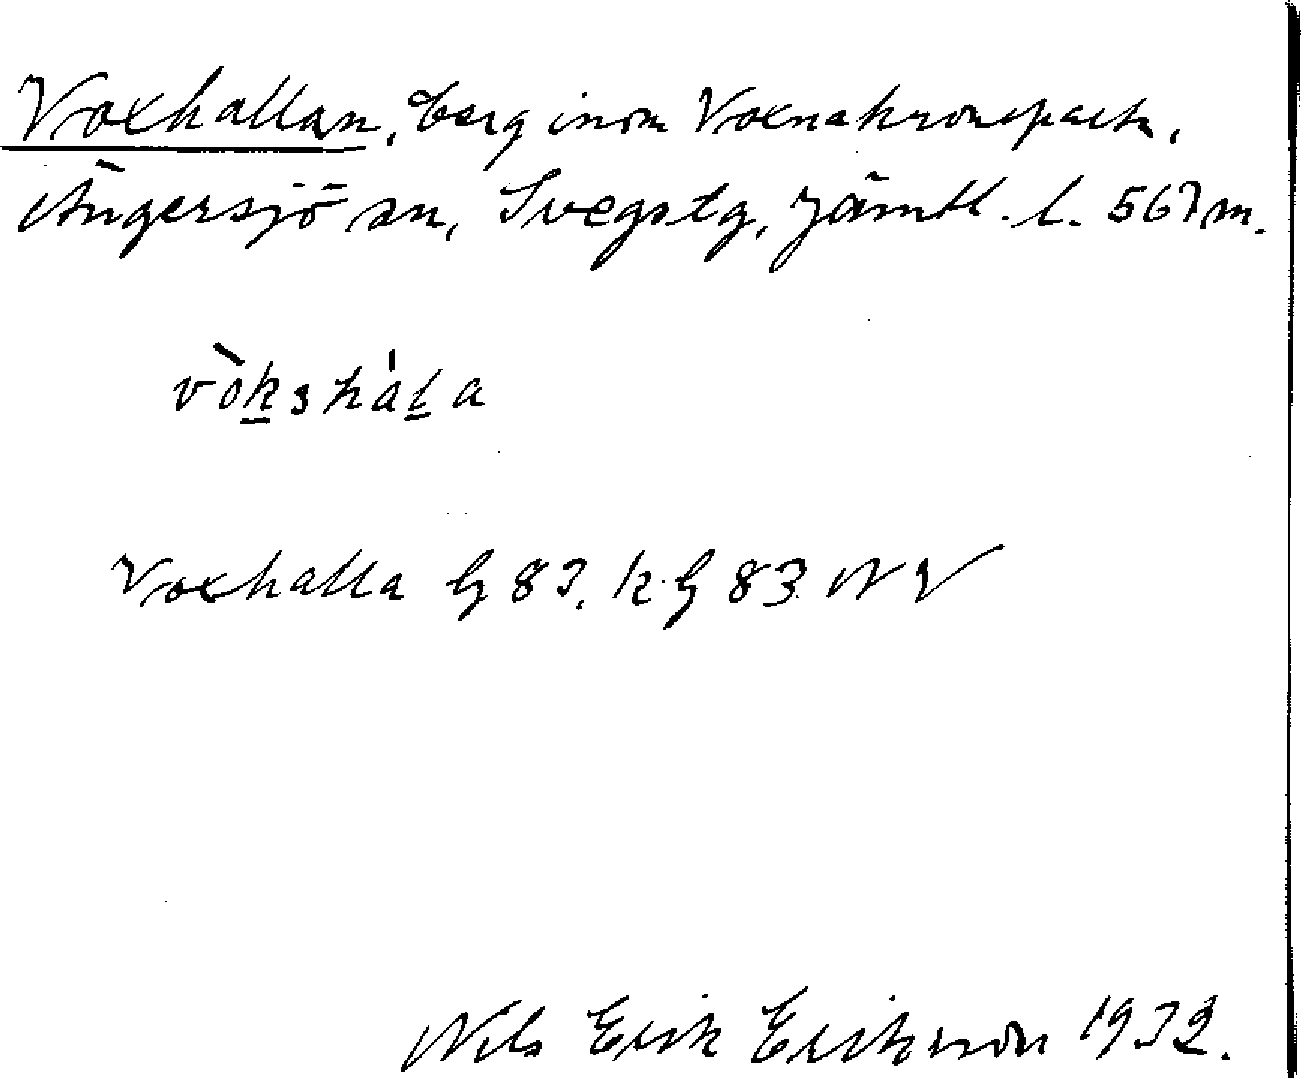 Voxhallan, berg inom Voxnakronopark,
Ängersjö sn, Svegs tg, Jämtl. l. 567 m.
vòk̲shál̲a
Voxhalla Gg 83, k. Gg 83 NV
Nils Erik Erikson 1932.